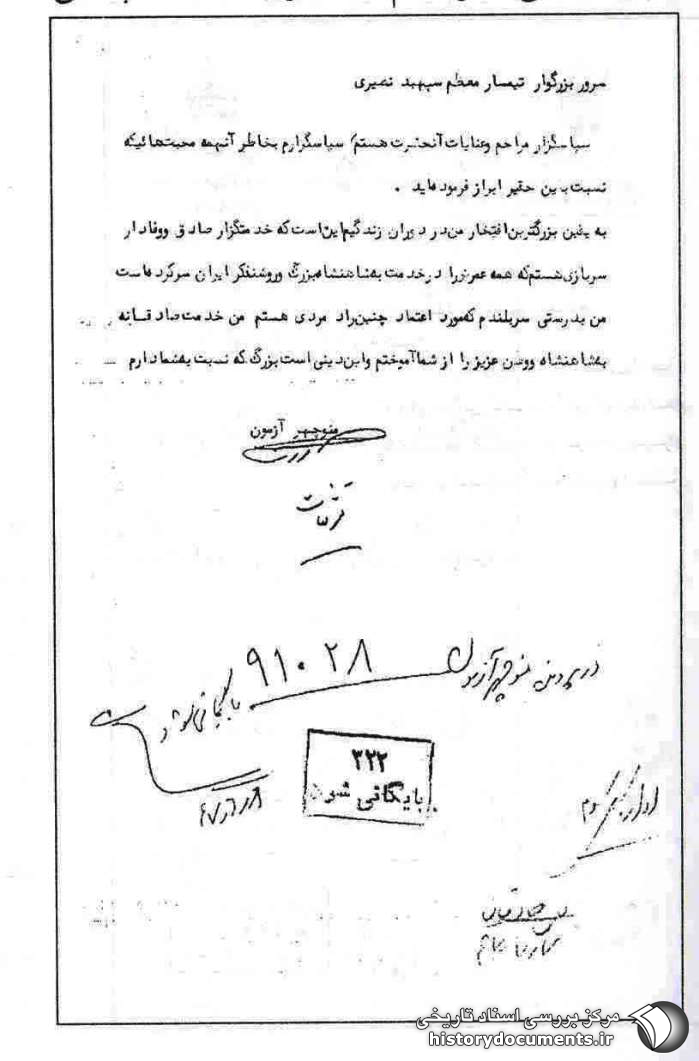 سرور بزرگوار تیمسار معظم سپهبد نصیری
سپاسگزار مراحم وعنایات آنحضرت هستم سپاسگزارم بخاطر آنهمه محبت‌هائیکه
نسبت باین حقیر ابراز فرموده‌اید .
به یقین بزرگترین افتخار من در دوران زندگیم این است که خدمتگزار صادق ووفادار
سربازی هستم که همه عمرش را درخدمت به شاهنشاه بزرگ وروشنفکر ایران سرکرده است
من بدرستی سربلندم که مورد اعتماد چنین راد مردی هستم من خدمت صادقانه
به شاهنشاه ووطن عزیز را از شما آموختم واین دینی است بزرگ که نسبت به شما دارم
منوچهر آزمون
در پرونده منوچهر آزمون ۹۱۰۲۸ بایگانی شود
۳۲۲
بایگانی شد
اداره کل سوم
مرکز بررسی اسناد تاریخی
historydocuments.ir